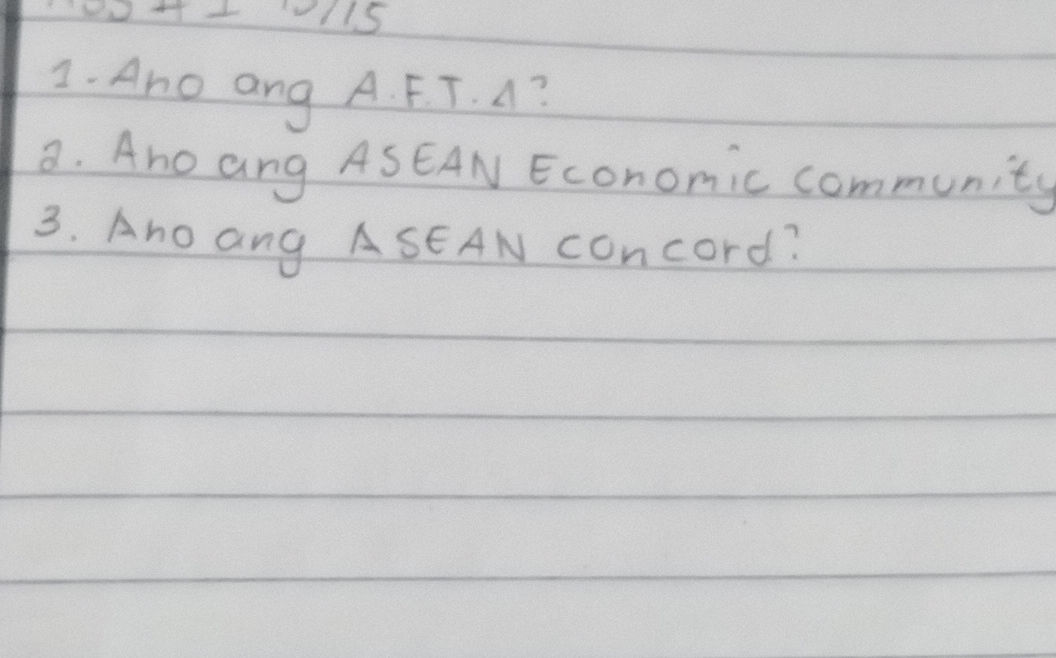 # 1 15/15
1. Ano ang A.F.T.A?
2. Ano ang ASEAN Economic community
3. Ano ang ASEAN concord?